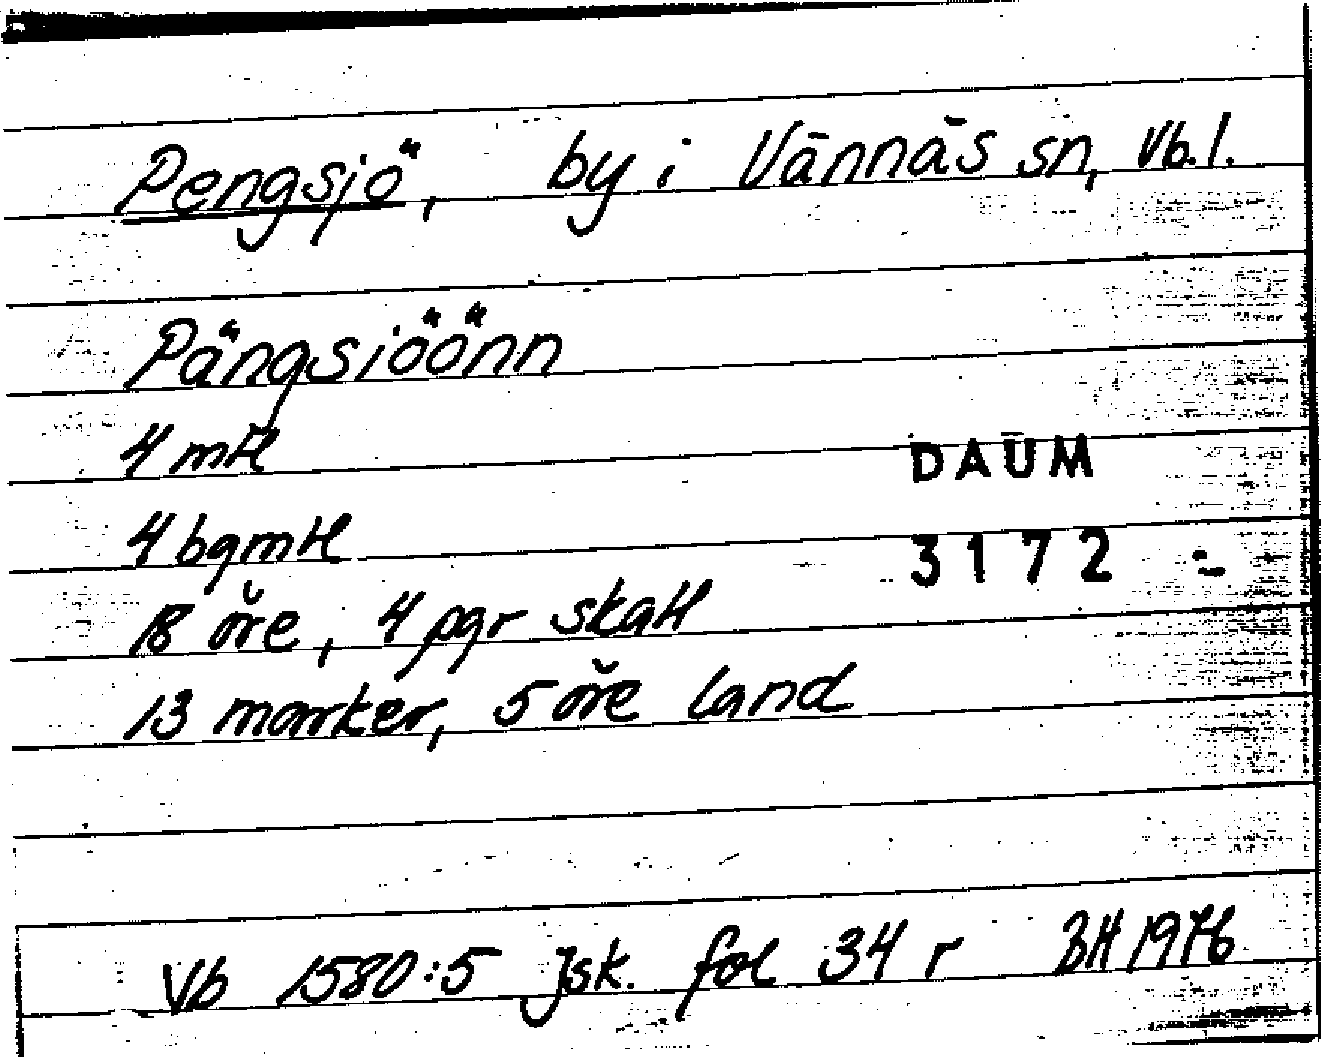 Pengsjö, by i Vännäs sn, Vb.l.
Pängsiöönn
4 mtl
DAUM
4 bgmtl
3172
18 öre, 4 pgr skatt
13 marker, 5 öre land
Vb 1580:5 Jsk. fol 34 r BH 1976